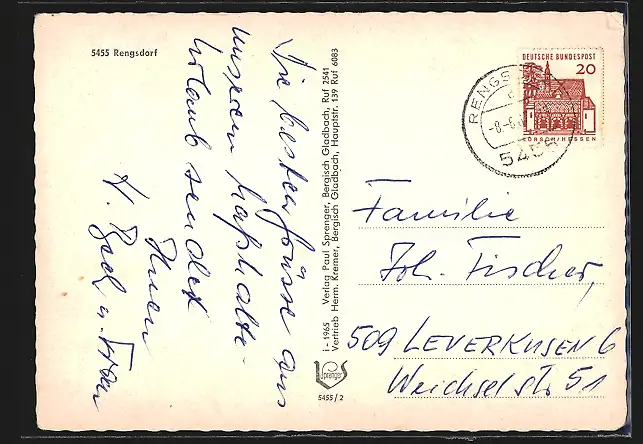 5455 Rengsdorf
Die besten Grüsse aus
unserem
Urlaub sendet
Ihnen
H. u. Frau
i - 1965 Verlag Paul Sprenger, Bergisch Gladbach, Ruf 2541
Vertrieb Herm. Kremer, Bergisch Gladbach, Hauptstr. 139 Ruf 6083
Sprenger
5455/2
DEUTSCHE BUNDESPOST
20
LORSCH/HESSEN
5455
Familie
Joh. Fischer,
509 LEVERKUSEN 6
Weichselstr. 51